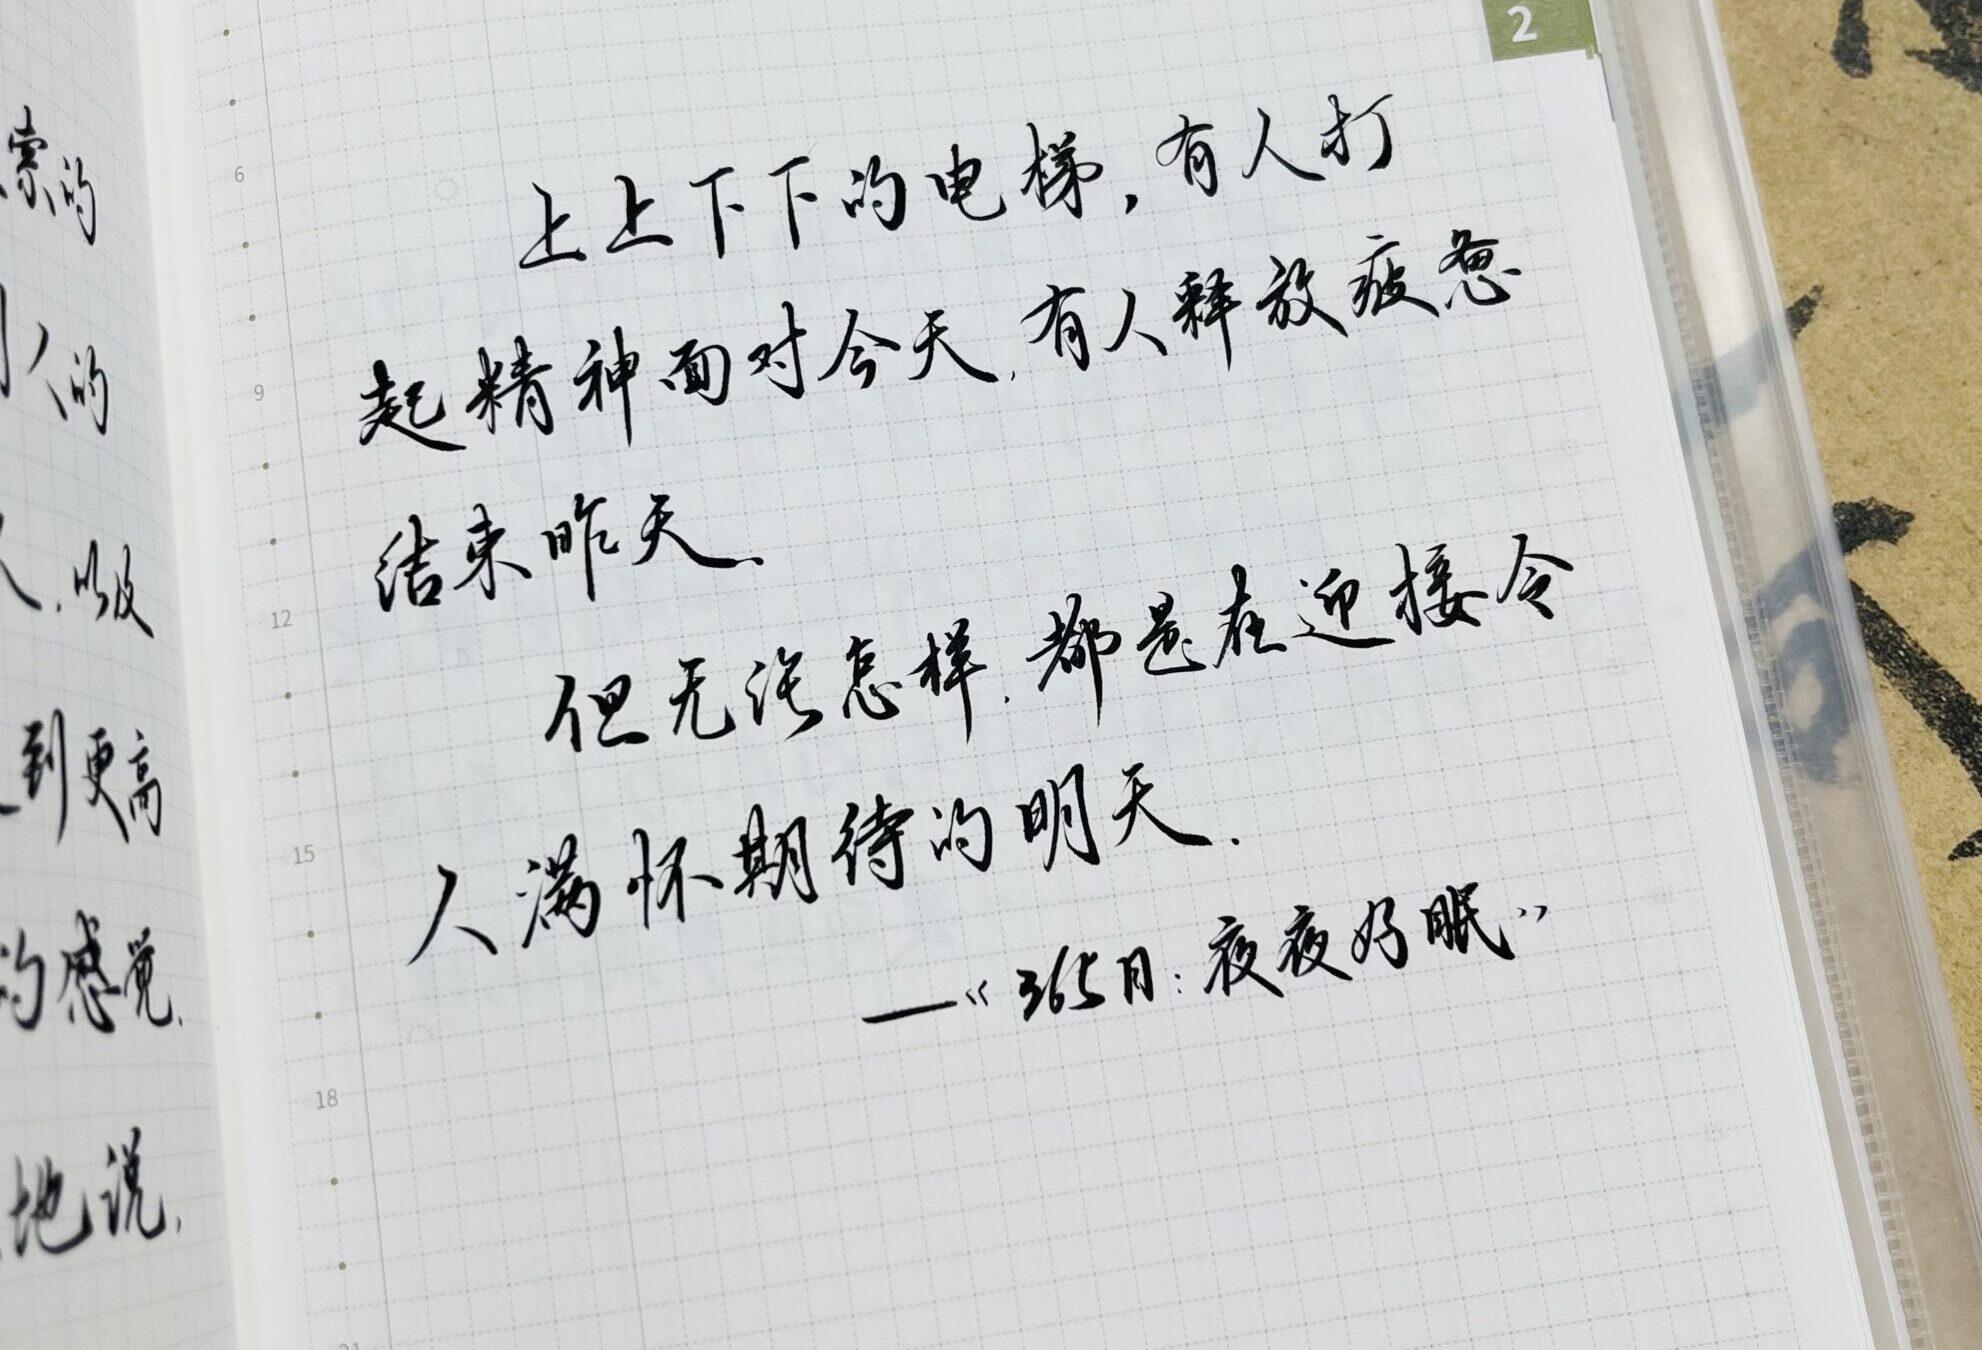 索的
人的
以及
到更高
的感觉.
地说,
2
6
9
12
15
18
上上下下的电梯,有人打
起精神面对今天,有人释放疲惫
结束昨天.
但无论怎样.都是在迎接令
人满怀期待的明天.
—《365日:夜夜好眠》